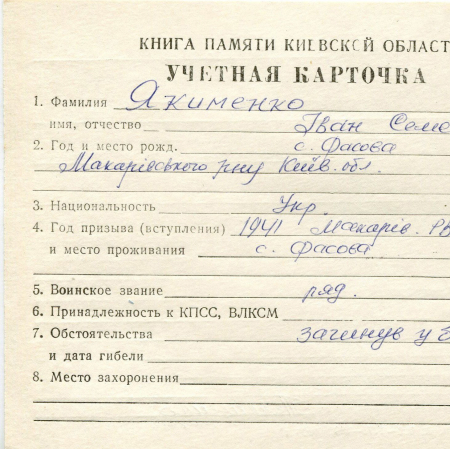 КНИГА ПАМЯТИ КИЕВСКОЙ ОБЛАСТ
УЧЕТНАЯ КАРТОЧКА
1. Фамилия Якименко
имя, отчество Іван Семе
2. Год и место рожд. с. Фасова
Макарівського р-ну Київ. обл.
3. Национальность Укр.
4. Год призыва (вступления) 1941 Макарів. РВ
и место проживания с. Фасова
5. Воинское звание ряд.
6. Принадлежность к КПСС, ВЛКСМ
7. Обстоятельства загинув у
и дата гибели
8. Место захоронения